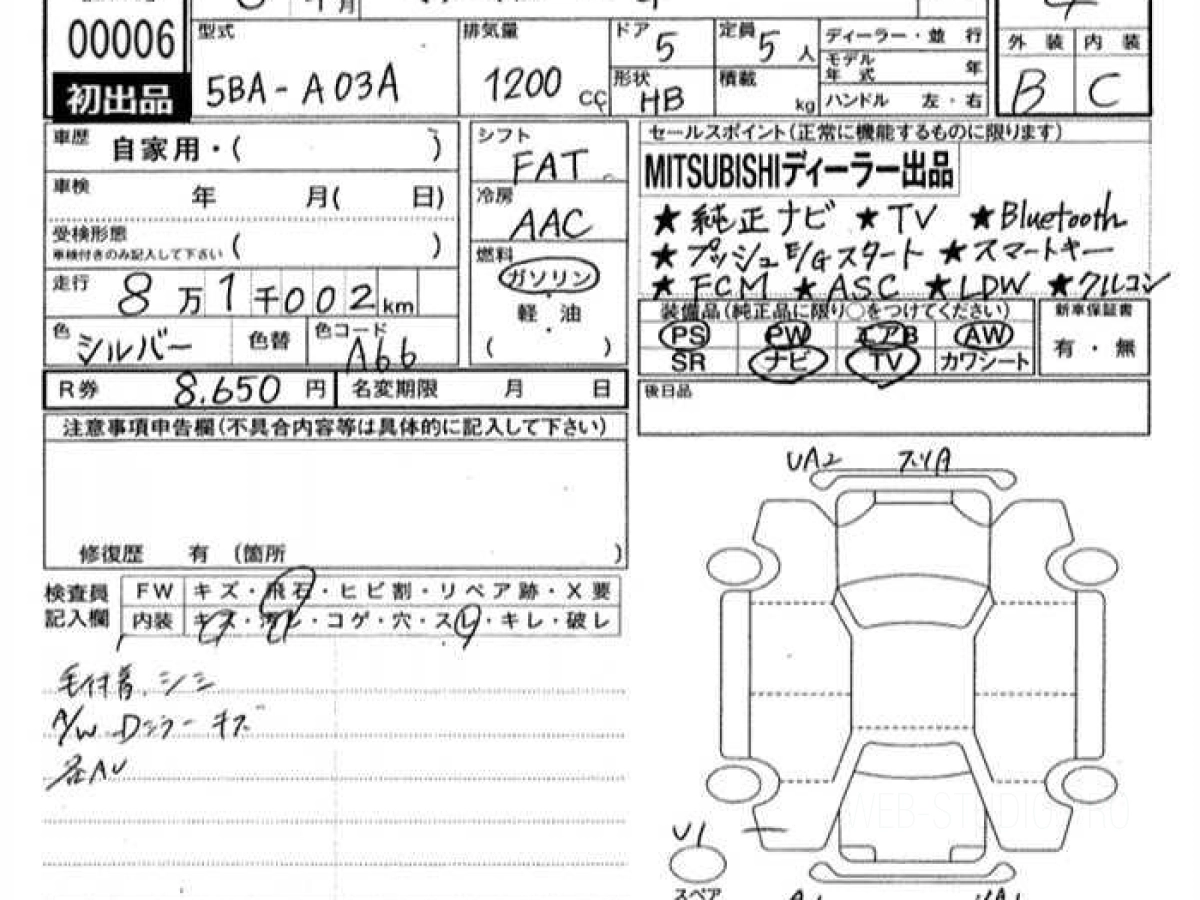 00006
初出品
型式
5BA-A03A
排気量
1200 cc
ドア
5
定員
5 人
形状
HB
積載
kg
ディーラー・並 行
モデル年 式 年
ハンドル 左・右
外 装 内 装
B C
車歴 自家用・( )
車検 年 月( 日)
受検形態 ( )
車検付きのみ記入して下さい
走行 8万1千002km
色 シルバー 色替 色コード A66
シフト
FAT
冷房
AAC
燃料
ガソリン
軽・油
( ・ )
セールスポイント(正常に機能するものに限ります)
MITSUBISHIディーラー出品
★純正ナビ ★TV ★Bluetooth
★プッシュE/Gスタート ★スマートキー
★FCM ★ASC ★LDW ★クルコン
装備品(純正品に限り○をつけてください)
PS PW エアB AW
SR ナビ TV カワシート
新車保証書
有・無
R券 8,650 円 名変期限 月 日
後日品
注意事項申告欄(不具合内容等は具体的に記入して下さい)
修復歴 有 (箇所 )
検査員記入欄
FW キズ・飛石・ヒビ割・リペア跡・X要
内装 キズ・汚レ・コゲ・穴・スレ・キレ・破レ
毛付着、シミ
A/W、Dミラーキズ
各AU
UA2 スリA
U1
スペア
WEB-STUDIO.PRO